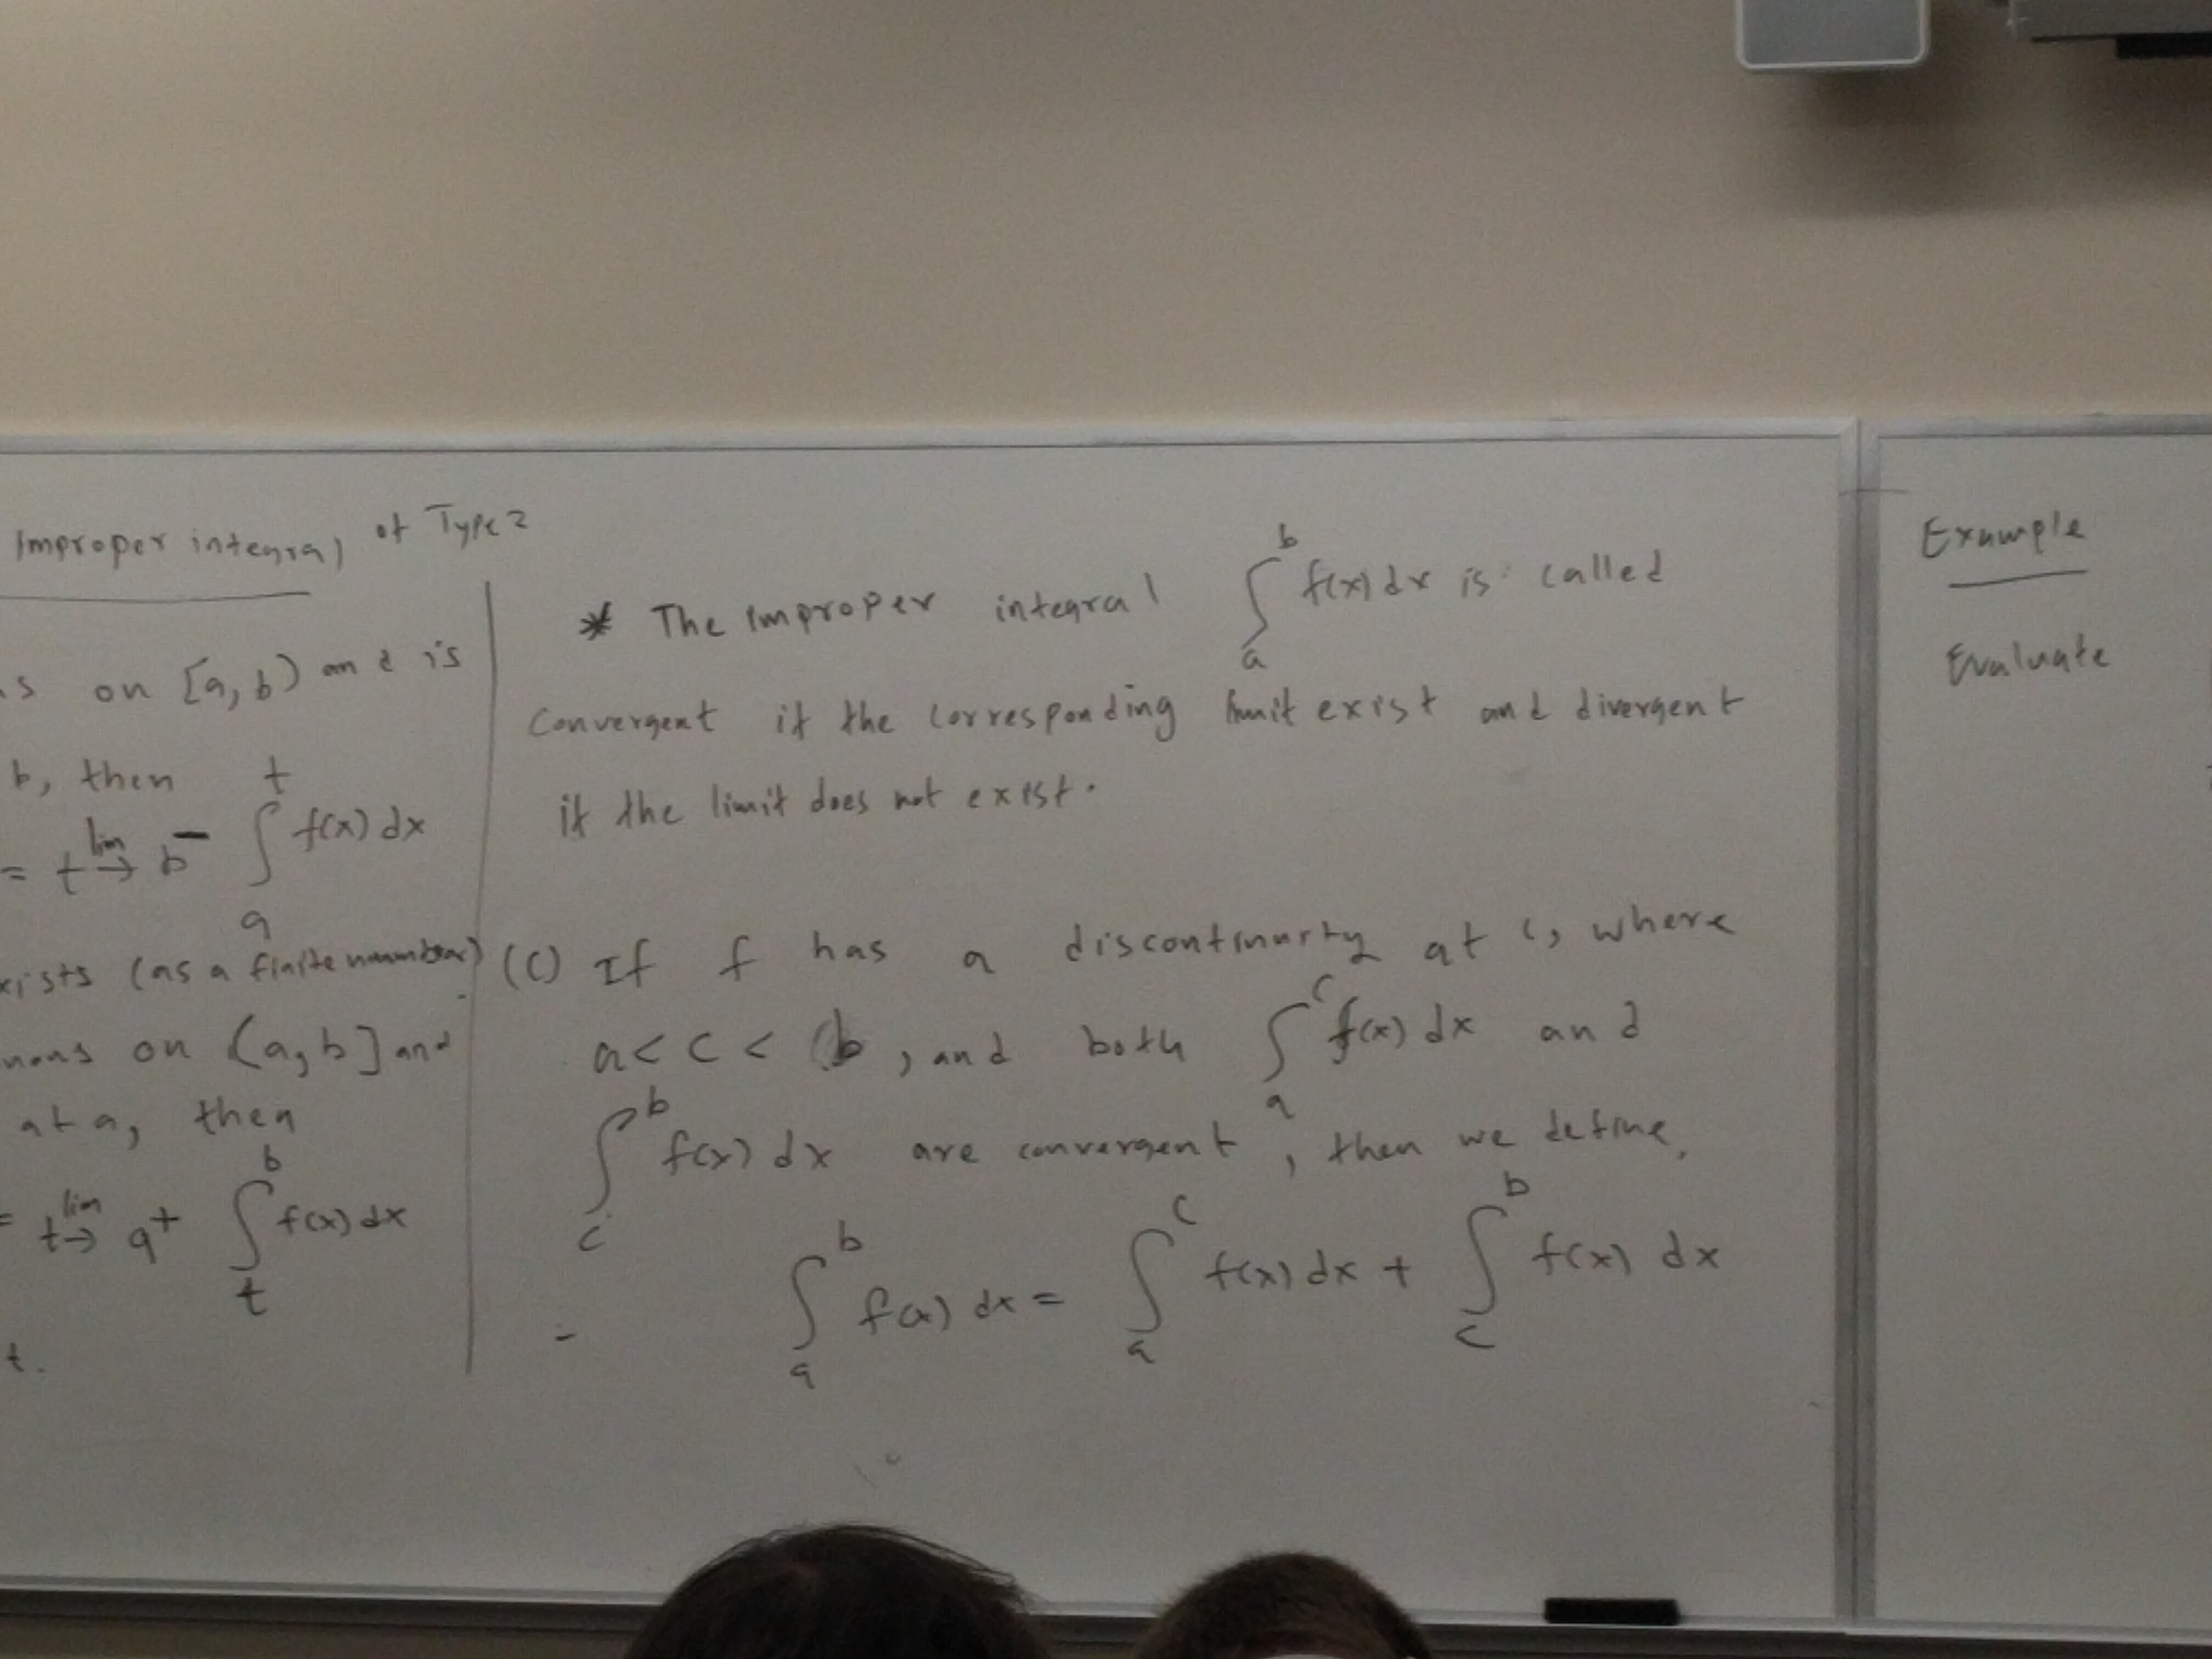 Improper integral of Type 2
s on [a, b) and is
b, then
= lim t→b⁻ ∫_a^t f(x) dx
xists (as a finite nummber)
nous on (a, b] and
at a, then
= lim t→a⁺ ∫_t^b f(x) dx
t.
* The Improper integral ∫_a^b f(x) dx is called
convergent if the corresponding limit exist and divergent
if the limit does not exist.
(c) If f has a discontinuity at c, where
a < c < b, and both ∫_a^c f(x) dx and
∫_c^b f(x) dx are convergent, then we define,
∫_a^b f(x) dx = ∫_a^c f(x) dx + ∫_c^b f(x) dx
Example
Evaluate